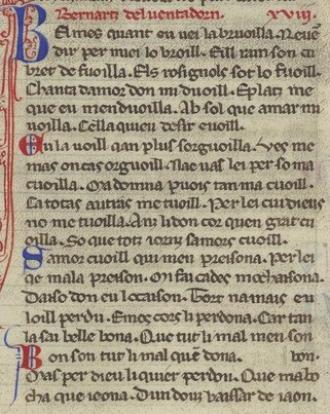 Bernartz del uentadorn. xviii.
Bel mes quant eu uei la bruoilla. Neue
dir per miei lo broill. Eill ram son cu
bret de fuoilla. Els rosignols sot lo fuoill.
Chanta damor don mi duoill. E platz me
que eu men duoilla. Ab sol que amar mi
uoilla. Cella quieu desir e uoill.
Eu la uoill qan plus sorguoilla. Ves me
mas oncas orguoill. Nac uas lei per so ma
cuoilla. Ma domna puois tan ma cuoill.
Ca totas autras me tuoill. Per lei cui dieus
no me tuoilla. Anz li don cor quen grat cu
oilla. So que totz iorns samors cuoill.
Samor cuoill qui men preisona. Per lei
qe mala preison. On fai cades mochaisona.
Daiso don eu locaison. Tort na mais eu
loill perdu. E mos cors li perdona. Car tan
la sai belle bona. Que tut li mal men son
Bon son tut li mal que dona. bon.
Mas per dieu li quier perdon. Que ma bo
cha que ieona. Dun douz baissar de iaon.